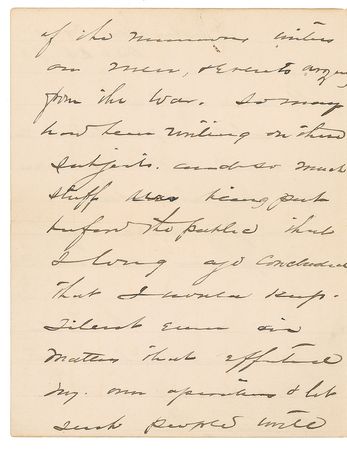 of the numerous writers
on men, & events arising
from the War. So many
have been writing on these
subjects. and so much
stuff was being put
before the public that
I long ago concluded
that I would keep
silent even in
matters that effected
my own operations & let
such people write